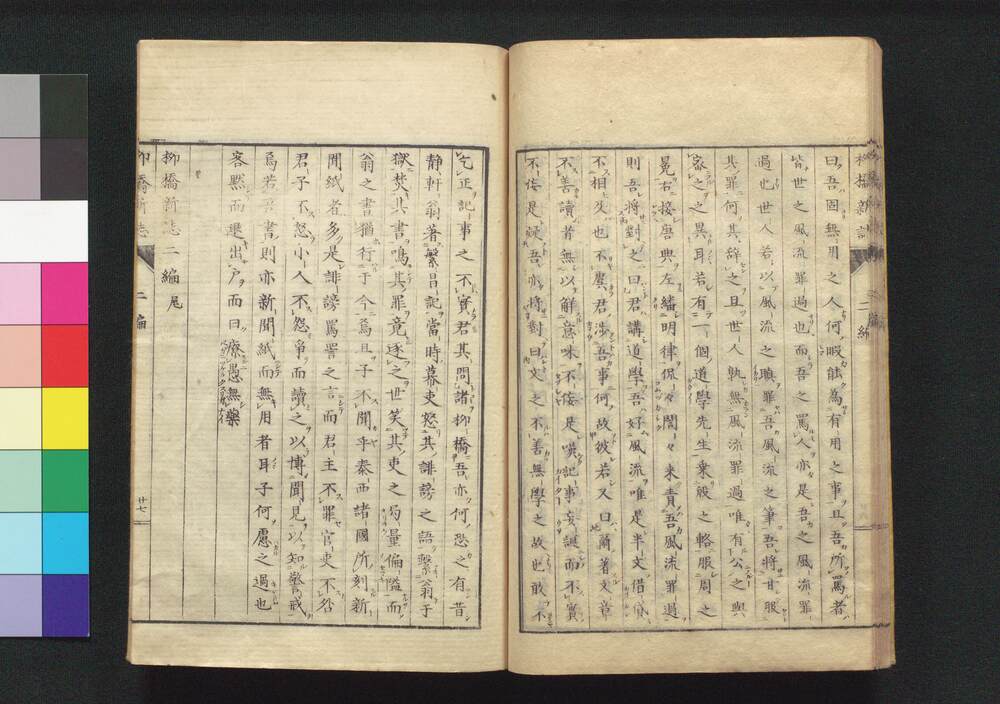 曰吾固無用之人何暇能為有用之事且吾所罵者
皆世之風流罪過也而吾之罵人亦是吾之風流罪
過也世人若以風流之職罪吾風流之筆吾將甘服
其罪何其辭之且世人孰無風流罪過唯有公之與
密之之異耳若有一個道學先生乗殷之輅服周之
冕右接唐典左繙明律侃々誾々来責吾風流罪過
則吾將對之曰君講道學吾好風流唯是半文借
不相及也不虞君渉吾事何故彼若又曰爾著文章
不善讀者無以解意味不佞是嘆記事妄誕而不實
不佞是疑吾亦將對曰文之不善無學之故也敢不
乞正記事之不實君其問諸柳橋吾亦何恐之有昔
静軒翁著繁昌記當時幕吏怒其誹謗之語繋翁于
獄焚其書鳴其罪竟逐之世笑其吏之局量偏隘而
翁之書猶行于今焉且子不聞乎泰西諸國所刻新
聞紙者多是誹謗罵詈之言而君主不罪官吏不咎
君子不怒小人不怨争而讀之以博聞見以知警戒
焉若吾書則亦新聞紙而無用者耳子何慮之過也
客黙而退出戸而曰療愚無藥
柳橋新誌二編尾
柳橋新誌
二編
廿七